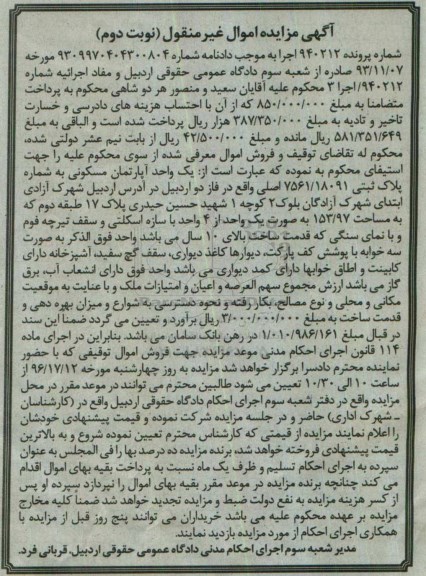 آگهی مزایده اموال غیرمنقول (نوبت دوم)
شماره پرونده ۹۴۰۲۱۲ اجرا به موجب دادنامه شماره ۹۳۰۹۹۷۰۴۰۴۳۰۰۸۰۴ مورخه
۹۳/۱۱/۰۷ صادره از شعبه سوم دادگاه عمومی حقوقی اردبیل و مفاد اجرائیه شماره
۹۴۰۲۱۲/اجرا ۳ محکوم علیه آقایان سعید و منصور هر دو شاهی محکوم به پرداخت
متضامنا به مبلغ ۸۵۰/۰۰۰/۰۰۰ که از آن با احتساب هزینه های دادرسی و خسارت
تاخیر و تادیه به مبلغ ۳۸۷/۳۵۰/۰۰۰ هزار ریال پرداخت شده است و الباقی به مبلغ
۵۸۱/۳۵۱/۶۴۹ ریال مانده و مبلغ ۴۲/۵۰۰/۰۰۰ ریال از بابت نیم عشر دولتی شده،
محکوم له تقاضای توقیف و فروش اموال معرفی شده از سوی محکوم علیه را جهت
استیفای محکوم به نموده که عبارت است از: یک واحد آپارتمان مسکونی به شماره
پلاک ثبتی ۷۵۶۱/۱۸۰۹۱ اصلی واقع در فاز دو اردبیل در آدرس اردبیل شهرک آزادی
ابتدای شهرک آزادگان بلوک ۲ کوچه ۱ شهید حسین حیدری پلاک ۱۷ طبقه دوم که
به مساحت ۱۵۳/۹۷ به صورت یک واحد از ۴ واحد با سازه اسکلتی و سقف تیرچه فوم
و با نمای سنگی که قدمت ساخت بالای ۱۰ سال می باشد واحد فوق الذکر به صورت
سه خوابه با پوشش کف پارکت، دیوارها کاغذ دیواری، سقف گچ سفید، آشپزخانه دارای
کابینت و اطاق خوابها دارای کمد دیواری می باشد واحد فوق دارای انشعاب آب، برق
گاز می باشد ارزش مجموع سهم العرصه و اعیان و امتیازات ملک و با عنایت به موقعیت
مکانی و محلی و نوع مصالح، بکار رفته و نحوه دسترسی به شوارع و میزان بهره دهی و
قدمت ساخت به مبلغ ۳/۰۰۰/۰۰۰/۰۰۰ ریال برآورد و تعیین می گردد ضمناً این سند
در قبال مبلغ ۱/۰۱۰/۹۸۶/۱۶۱ در رهن بانک سامان می باشد. بنابراین در اجرای ماده
۱۱۴ قانون اجرای احکام مدنی موعد مزایده جهت فروش اموال توقیفی که با حضور
نماینده محترم دادسرا برگزار خواهد شد مزایده به روز چهارشنبه مورخه ۹۶/۱۷/۱۲ از
ساعت ۱۰ الی ۱۰/۳۰ تعیین می شود طالبین محترم می توانند در موعد مقرر در محل
مزایده واقع در دفتر شعبه سوم اجرای احکام دادگاه حقوقی اردبیل واقع در (کارشناسان
ـ شهرک اداری) حاضر و در جلسه مزایده شرکت نموده و قیمت پیشنهادی خودشان
را اعلام نمایند مزایده از قیمتی که کارشناس محترم تعیین نموده شروع و به بالاترین
قیمت پیشنهادی فروخته خواهد شد، برنده مزایده ده درصد بها را فی المجلس به عنوان
سپرده به اجرای احکام تسلیم و ظرف یک ماه نسبت به پرداخت بقیه بهای اموال اقدام
می کند چنانچه برنده مزایده در موعد مقرر بقیه بهای اموال را نپردازد سپرده او پس
از کسر هزینه مزایده به نفع دولت ضبط و مزایده تجدید خواهد شد ضمنا کلیه مخارج
مزایده بر عهده محکوم علیه می باشد خریداران می توانند پنج روز قبل از مزایده با
همکاری اجرای احکام از مورد مزایده بازدید نمایند.
مدیر شعبه سوم اجرای احکام مدنی دادگاه عمومی حقوقی اردبیل، قربانی فرد.